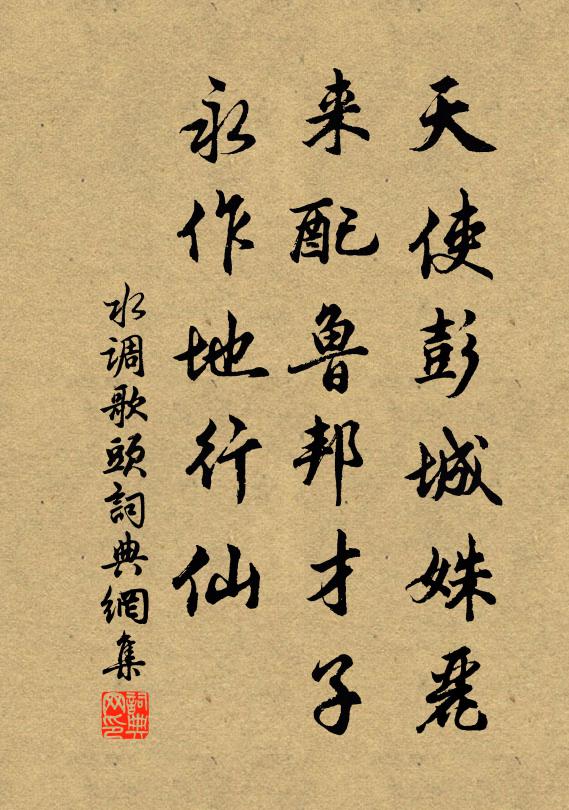 天使彭城姝麗
来配魯邦才子
永作地行仙
水调歌頭詞典網集
詞典网印